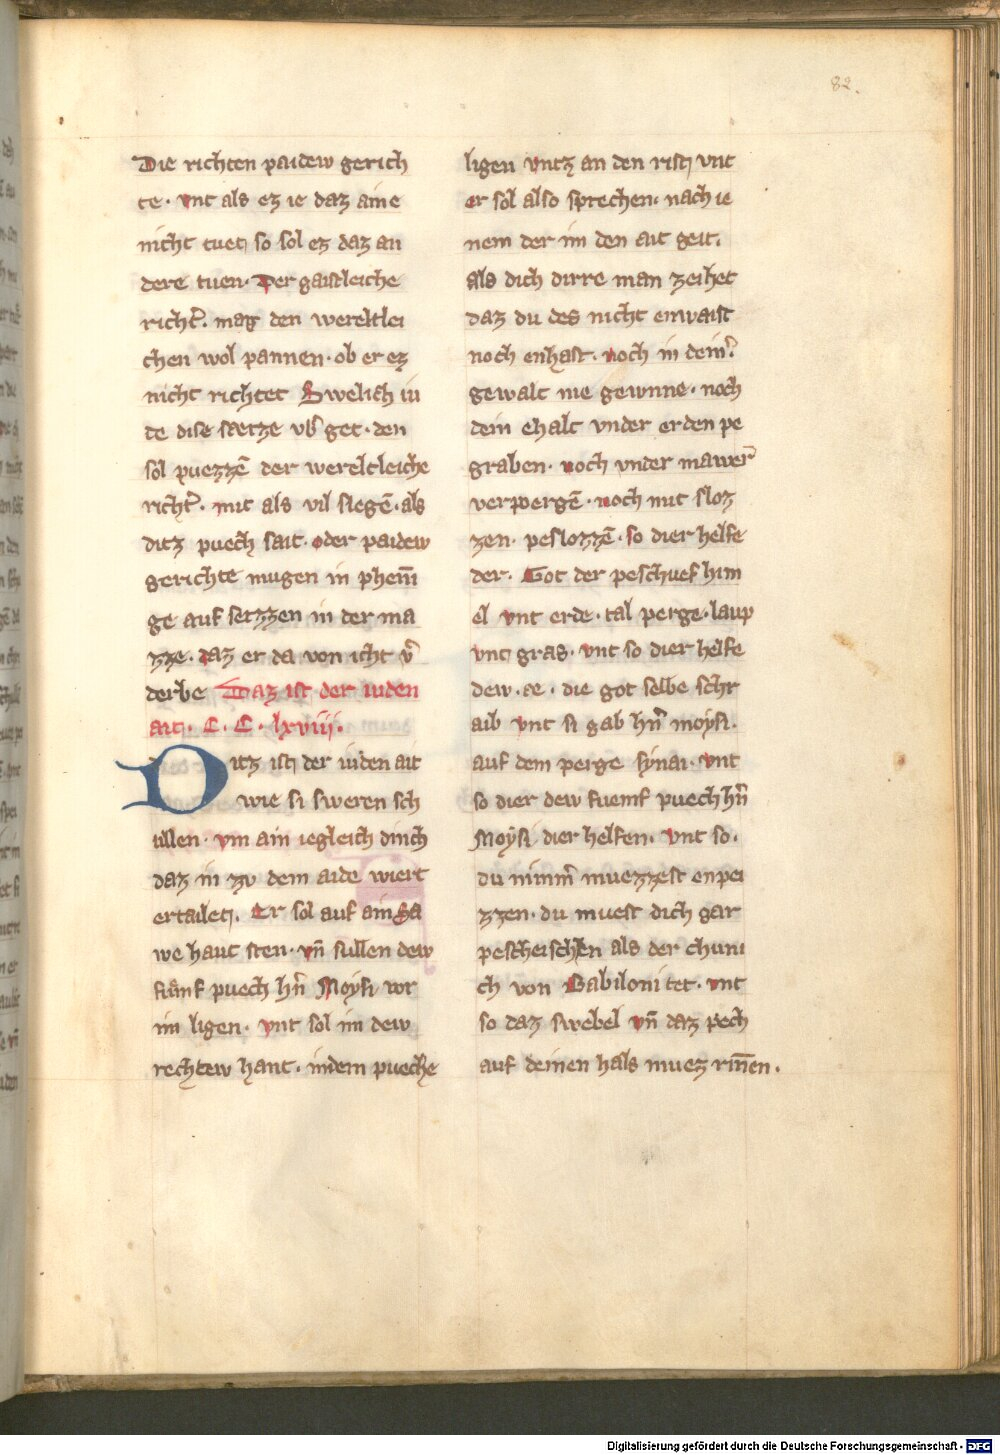 82.
Die richten paidew gerich
te · vnt als ez ie daz aine
nicht tuet so sol ez daz an
dere tuen · Der gaistleiche
richt̓ . mag den wereltlei
chen wol pannen · ob er ez
nicht richtet Swelich iu
de dise saetze vb̓ get · den
sol puezzē der wereltleiche
richt̓ . mit als vil slegē · als
ditz puech sait · oder paidew
gerichte mugen in phenī
ge auf setzzen in der ma
zze · daz er da von icht v̓
derbe Daz ist der iuden
ait . C . C . lxviij .
Ditz ist der iuden ait
wie si sweren sch
ullen · vm ain iegleich dinch
daz in zv dem aide wiert
ertailet . Er sol auf ain Sa
we haut sten · vn̄ sullen dew
fumf puech hn̓ Moysi vor
im ligen · vnt sol im dew
rechtew hant · indem pueche
ligen vntz an den rist vnt
er sol also sprechen · nach ie
nem der im den ait geit .
als dich dirre man zeihet
daz du des nicht enwaist
noch enhast · noch in dein̓ .
gewalt nie gewnne · noch
dein ehalt vnder erden pe
graben · noch vnder mawer̓
verpergē · noch mit sloz
zen · peslozzē · so dier helfe
der · Got der peschuef him
el vnt erde · tal perge · laup
vnt gras · vnt so dier helfe
dew · ae · die got selbe schr
aib vnt si gab hn̓ moysi .
auf dem perge synai · vnt
so dier dew fuemf puech hn̓
Moÿsi dier helfen · vnt so .
du nimm̓ muezzest enpei
zzen · du muest dich gar
pescheischen als der chuni
ch von Babiloni tet · vnt
so daz swebel vn̄ daz pech
auf deinen hals muez rin̄en .
Digitalisierung gefördert durch die Deutsche Forschungsgemeinschaft - DFG